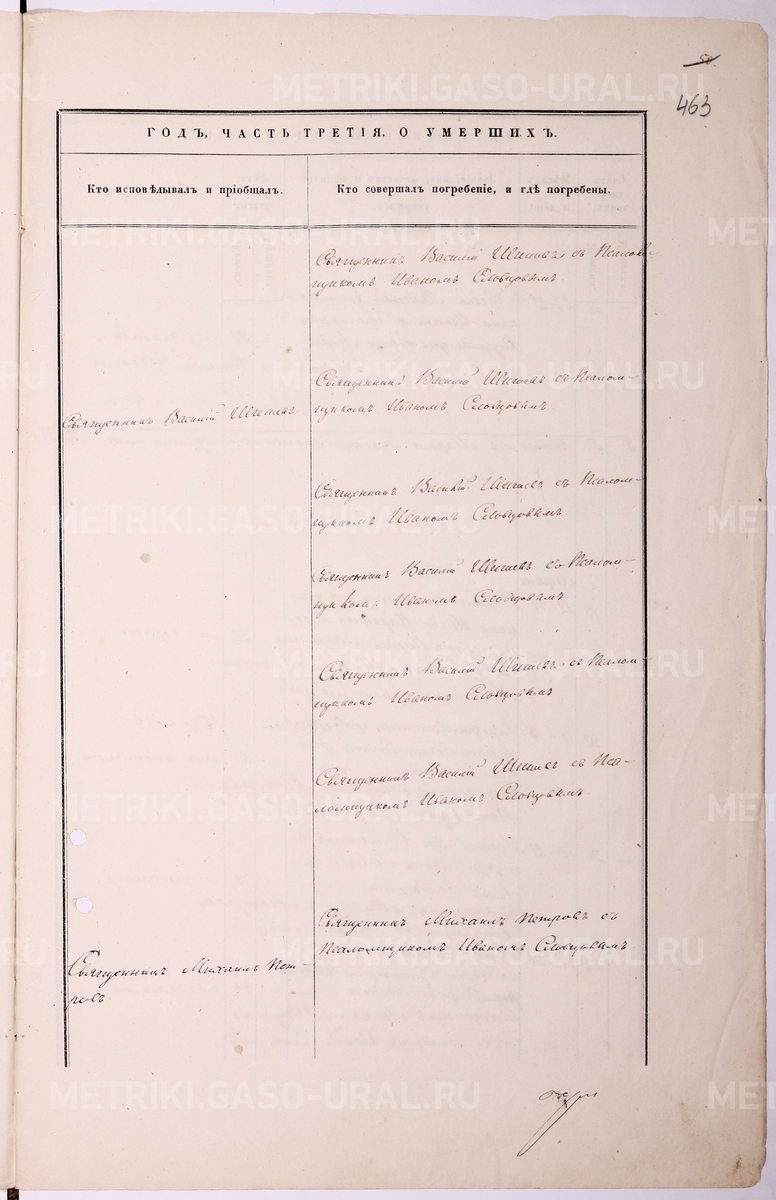 50
463
ГОДЪ, ЧАСТЬ ТРЕТІЯ, О УМЕРШИХЪ.
Кто исповѣдывалъ и пріобщалъ.
Кто совершалъ погребеніе, и гдѣ погребены.
Священникъ Василій Шишевъ съ Псаломщ-
щикомъ Иваномъ Словцовымъ.
Священникъ Василій Шишевъ
Священникъ Василій Шишевъ съ Псалом-
щикомъ Иваномъ Словцовымъ
Священникъ Василій Шишевъ съ Псалом-
щикомъ Иваномъ Словцовымъ.
Священникъ Василій Шишевъ съ Псалом-
щикомъ Иваномъ Словцовымъ
Священникъ Василій Шишевъ съ Псалом-
щикомъ Иваномъ Словцовымъ
Священникъ Василій Шишевъ съ Пса-
ломщикомъ Иваномъ Словцовымъ.
Священникъ Михаилъ Пет-
ровъ.
Священникъ Михаилъ Петровъ съ
Псаломщикомъ Иваномъ Словцовымъ
METRIKI.GASO-URAL.RU